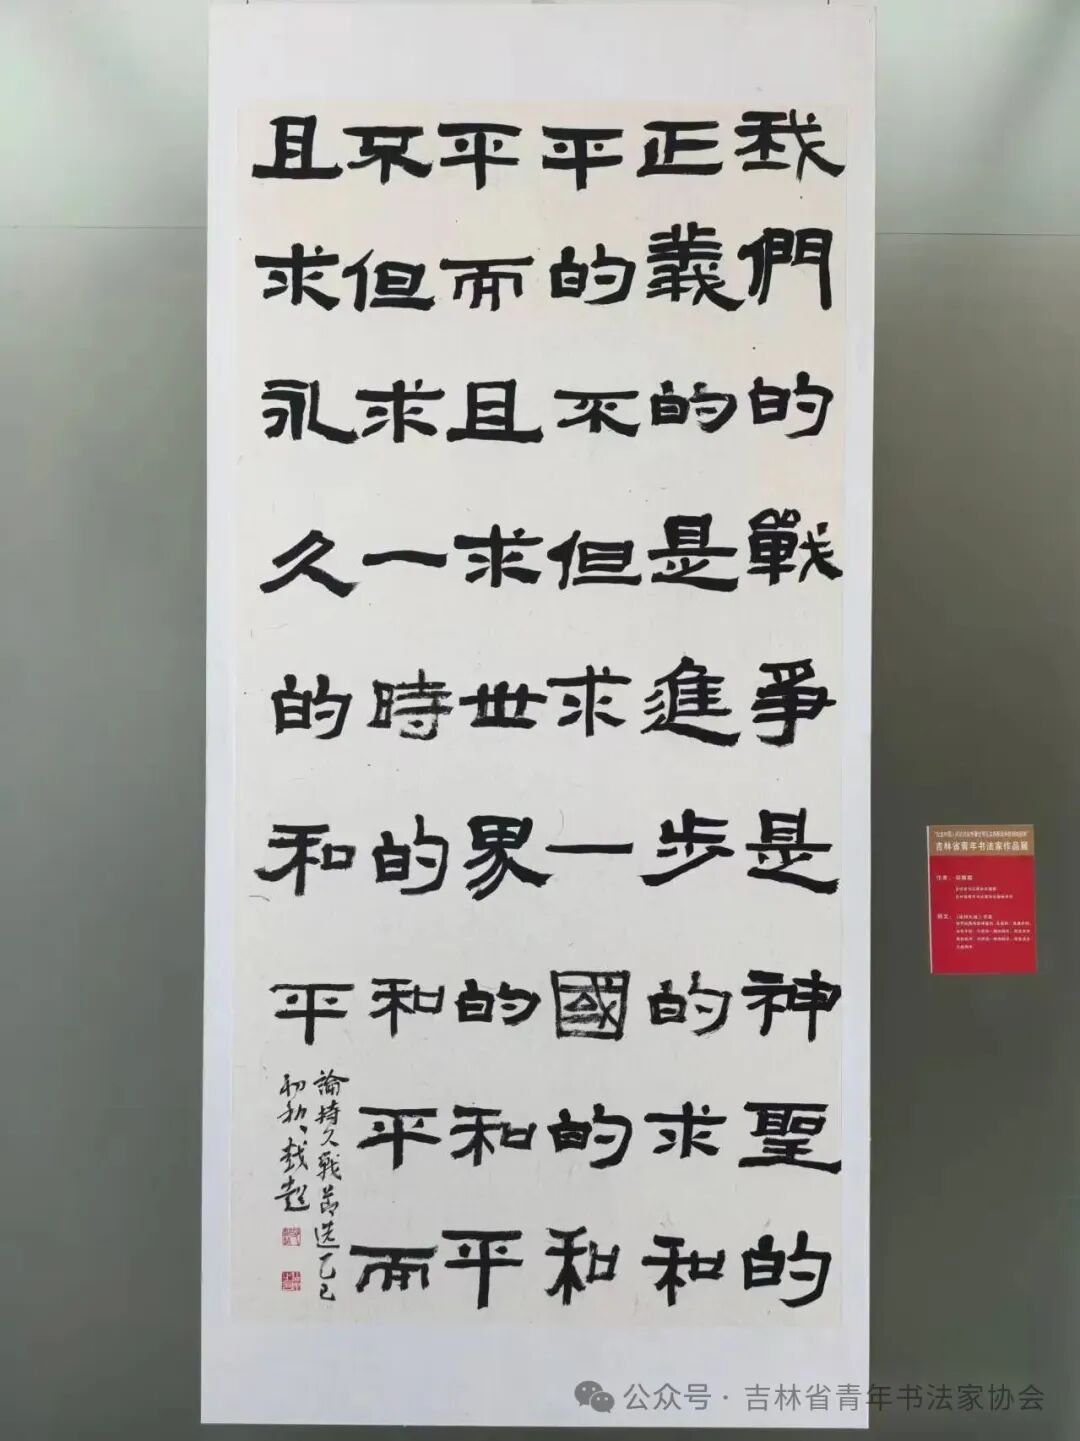 我們的戰爭是神聖的
正義的是進步的求和
平的不但求一國的和
平而且求世界的和平
不但求一時的和平而
且求永久的和平
論持久戰節選乙巳
初秋
吉林省青年书法家作品展
作者：
释文：《论持久战》节选
公众号 · 吉林省青年书法家协会